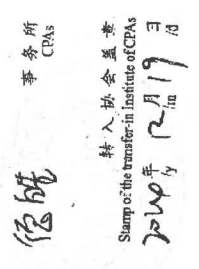 事务所
CPAs
转入协会盖章
Stamp of the transfer-in Institute of CPAs
年 12 月 19 日
/y /m /d